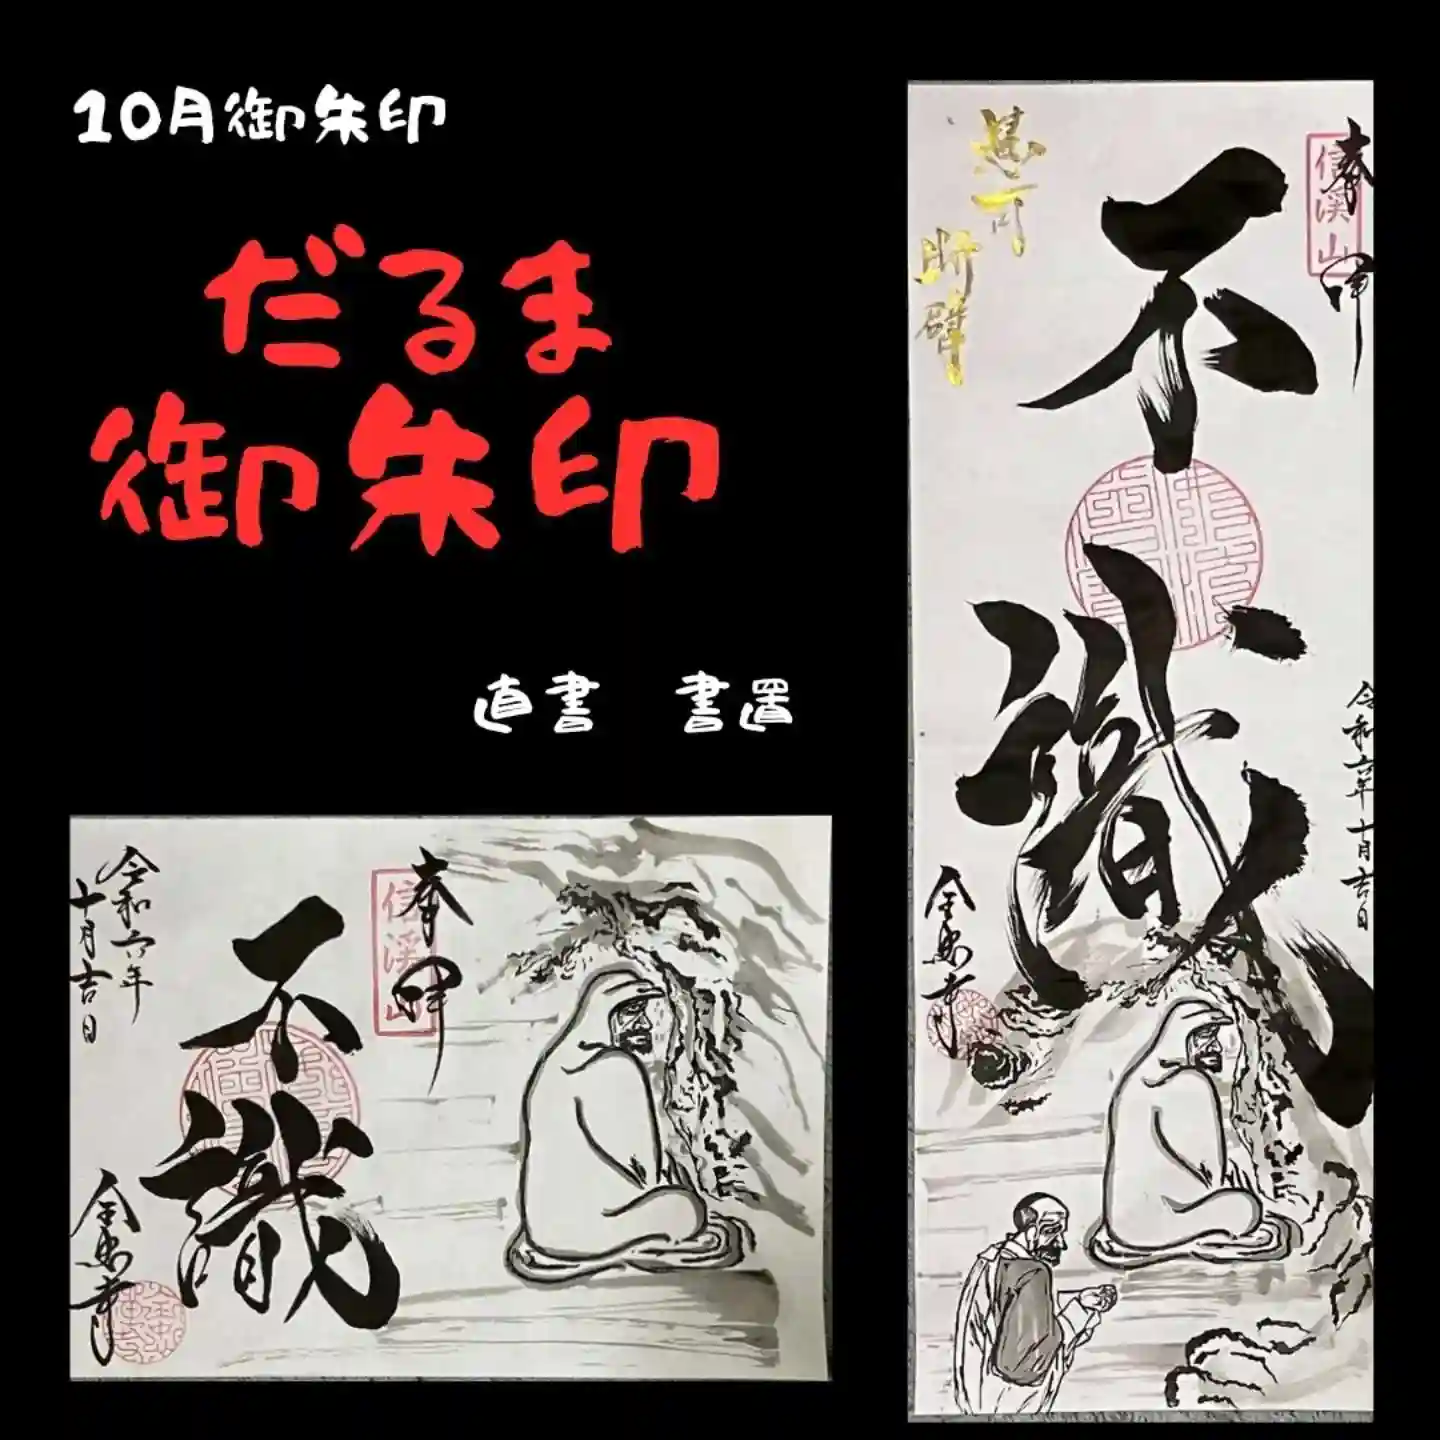 10月御朱印
だるま
御朱印
直書　書置
奉拝
信溪山
不識
令和六年
十月吉日
奉拝
信溪山
不識
慧可
断臂
令和六年十月吉日